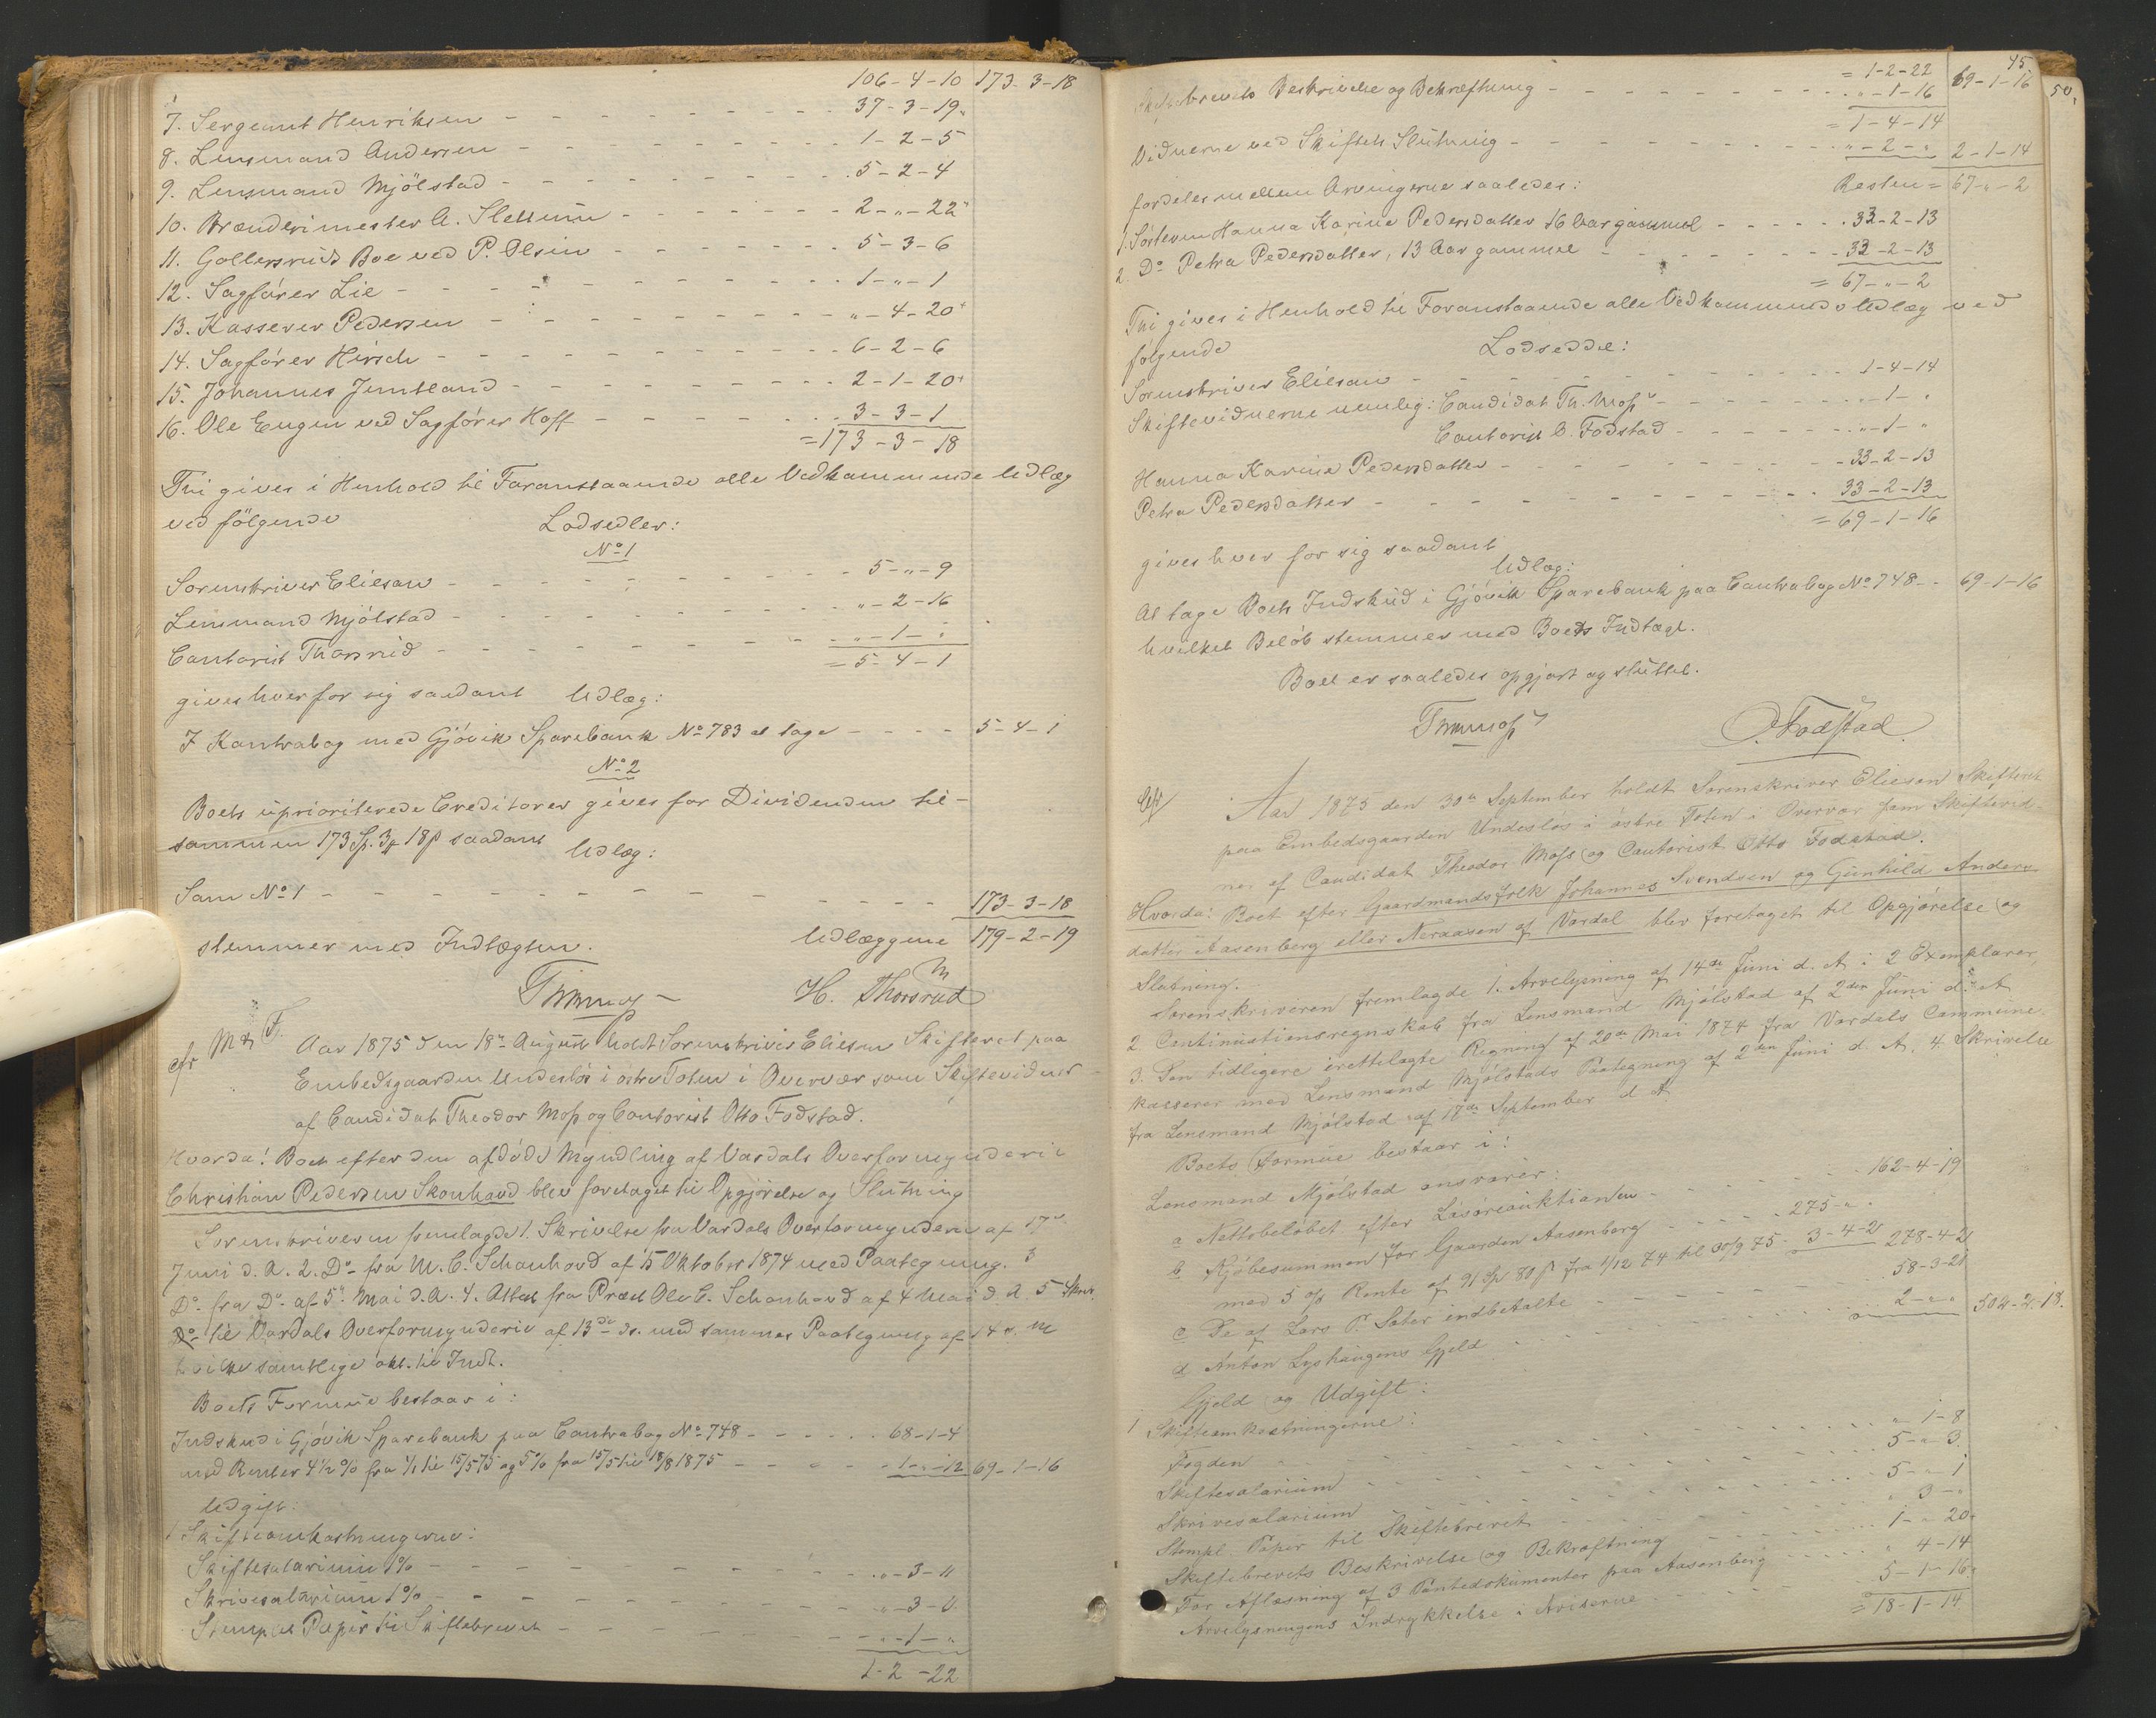 106-4-10 173-3-18
7. Sergeant Henriksen - - - 37-3-19
8. Lensmand Andersen - - - 1-2-5
9. Lensmand Mjölstad - - - 5-2-4
10. Brænderimester A. Slettum - - - 2-"-22
11. Gollersrud Boe ved P. Olsen - - - 5-3-6
12. Sagfører Lie - - - 1-"-1
13. Kasserer Pedersen - - - "-4-20
14. Sagfører Hirsch - - - 6-2-6
15. Johannes Jemtland - - - 2-1-20
16. Ole Engen ved Sagfører Hoff - - - 3-3-1
=173-3-18
Thi gives i Henhold til Foranstaaende alle Vedkommende Udlæg
ved følgende Lodsedler:
No 1
Sorenskriver Eliesen - - - 5-"-9
Lensmand Mjölstad - - - "-2-16
Cantorist Thorsrud - - - "-1-"
=5-4-1
gives hver for sig saadant Udlæg:
I Kontrabog med Gjøvik Sparebank No 783 at tage - - - 5-4-1
No 2
Boets uprioriterede Creditorer gives for Dividenden til-
sammen 173 Sp. 3 18 s saadant Udlæg:
Som No 1 - - - 173-3-18
stemmer med Indtægten. Udlæggene 179-2-19
H. Thorsrud
Aar 1875 den 18de August holdt Sorenskriver Eliesen Skifteret paa
Embedsgaarden Undeslös i østre Toten i Overvær som Skiftevidner
af Candidat Theodor Moss og Cantorist Otto Fodstad.
Hvorda: Boet efter den afdøde Myndling af Vardals Overformynderi
Christian Pedersen Skonhovd blev foretaget til Opgjørelse og Slutning
Sorenskriveren fremlagde 1. Skrivelse fra Vardals Overformynderi af 17de
Juni d. A. 2. Do fra M. C. Schonhovd af 15 Oktober 1874 med Paategning. 3
Do fra Do af 5te Mai d. A. 4. Attest fra Præst Ole C. Schonhovd af 4 Mai d A 5 Skriv.
Do til Vardals Overformynderi af 13de ds. med sammes Paategning af 14 s. M
hvilke samtlige akt. til Indt.
Boets Formue bestaar i:
Indskud i Gjøvik Sparebank paa Contrabog No 748 - - - 68-1-4
med Renter 4½% fra 1/1 til 15/5 75 og 5% fra 15/5 til 18/8 1875 - - - 1-"-12 69-1-16
Udgift:
1 Skifteomkostningerne:
Skiftesalarium 1% - - - "-3-11
Skriversalarium 1% - - - "-3-11
Stemplet Papir til Skiftebrevet - - - "-1-"
1-2-22
45
50,
=1-2-22 69-1-16
Skiftebrevets Beskrivelse og Bekræftning - - - "-1-16
=1-4-14
Vidnerne ved Skiftets Slutning - - - "-2-" 2-1-14
Resten = 67-"-2
fordeles mellem Arvingerne saaledes:
1. Søsteren Hanna Karine Pedersdatter 16 Aar gammel - - - 33-2-13
2 Do Petra Pedersdatter, 13 Aar gammel - - - 33-2-13
=67-"-2
Thi gives i Henhold til Foranstaaende alle Vedkommende Udlæg ved
følgende Lodseddel:
Sorenskriver Eliesen - - - 1-4-14
Skiftevidnerne nemlig: Candidat Th. Moss - - - "-1-"
Cantorist O. Fodstad - - - "-1-"
Hanna Karine Pedersdatter - - - 33-2-13
Petra Pedersdatter - - - 33-2-13
=69-1-16
gives hver for sig saadant
Udlæg:
At tage Boets Indskud i Gjøvik Sparebank paa Contrabog No 748 - - 69-1-16
hvilket Beløb stemmer med Boets Indtægt.
Boet er saaledes opgjort og sluttet.
O. Fodstad
Aar 1875 den 30te September holdt Sorenskriver Eliesen Skifteret
paa Embedsgaarden Undeslös i østre Toten i Overvær som Skiftevid-
ner af Candidat Theodor Moss og Cantorist Otto Fodstad.
Hvorda: Boet efter Gaardmandsfolk Johannes Svendsen og Gunhild Anders-
datter Aasenberg eller Neraasen af Vardal blev foretaget til Opgjørelse og
Slutning.
Sorenskriveren fremlagde 1. Arvelysning af 14de Juni d. A. i 2 Exemplarer
2 Continuationsregnskab fra Lensmand Mjölstad af 2den Juni d. A
3. Den tidligere irettelagte Regning af 20de Mai 1874 fra Vardals Commune-
kasserer med Lensmand Mjölstads Paategning af 2den Juni d. A. 4. Skrivelse
fra Lensmand Mjölstad af 17de September d A
Boets Formue bestaar i:
Lensmand Mjölstad ansvarer:
a Nettobeløbet efter Løsøreauktionen - - - 162-4-19
b Kjøbesummen for Gaarden Aasenberg - - - 275-"-"
med 5 % Rente af 91 Sp 80 s fra 1/12 74 til 30/9 75 - 3-4-2 278-4-2
c De af Lars P. Sater indbetalte - - - 58-3-21
d Anton Lyshaugens Gjeld - - - 2-"-" 502-2-18.
Gjeld og Udgift:
1 Skifteomkostningerne:
Fogden - - - "-1-8
Skiftesalarium - - - 5-"-3
Skriversalarium - - - 5-"-1
Stempl. Papir til Skiftebrevet - - - "3-"
Skiftebrevets Beskrivelse og Bekræftning - - - 1-"-20
For Aflæsning af 3 Pantedokumenter paa Aasenberg - - - "4-14
Arvelysningens Indrykkelse i Aviserne - - - 5-1-16
=18-1-14